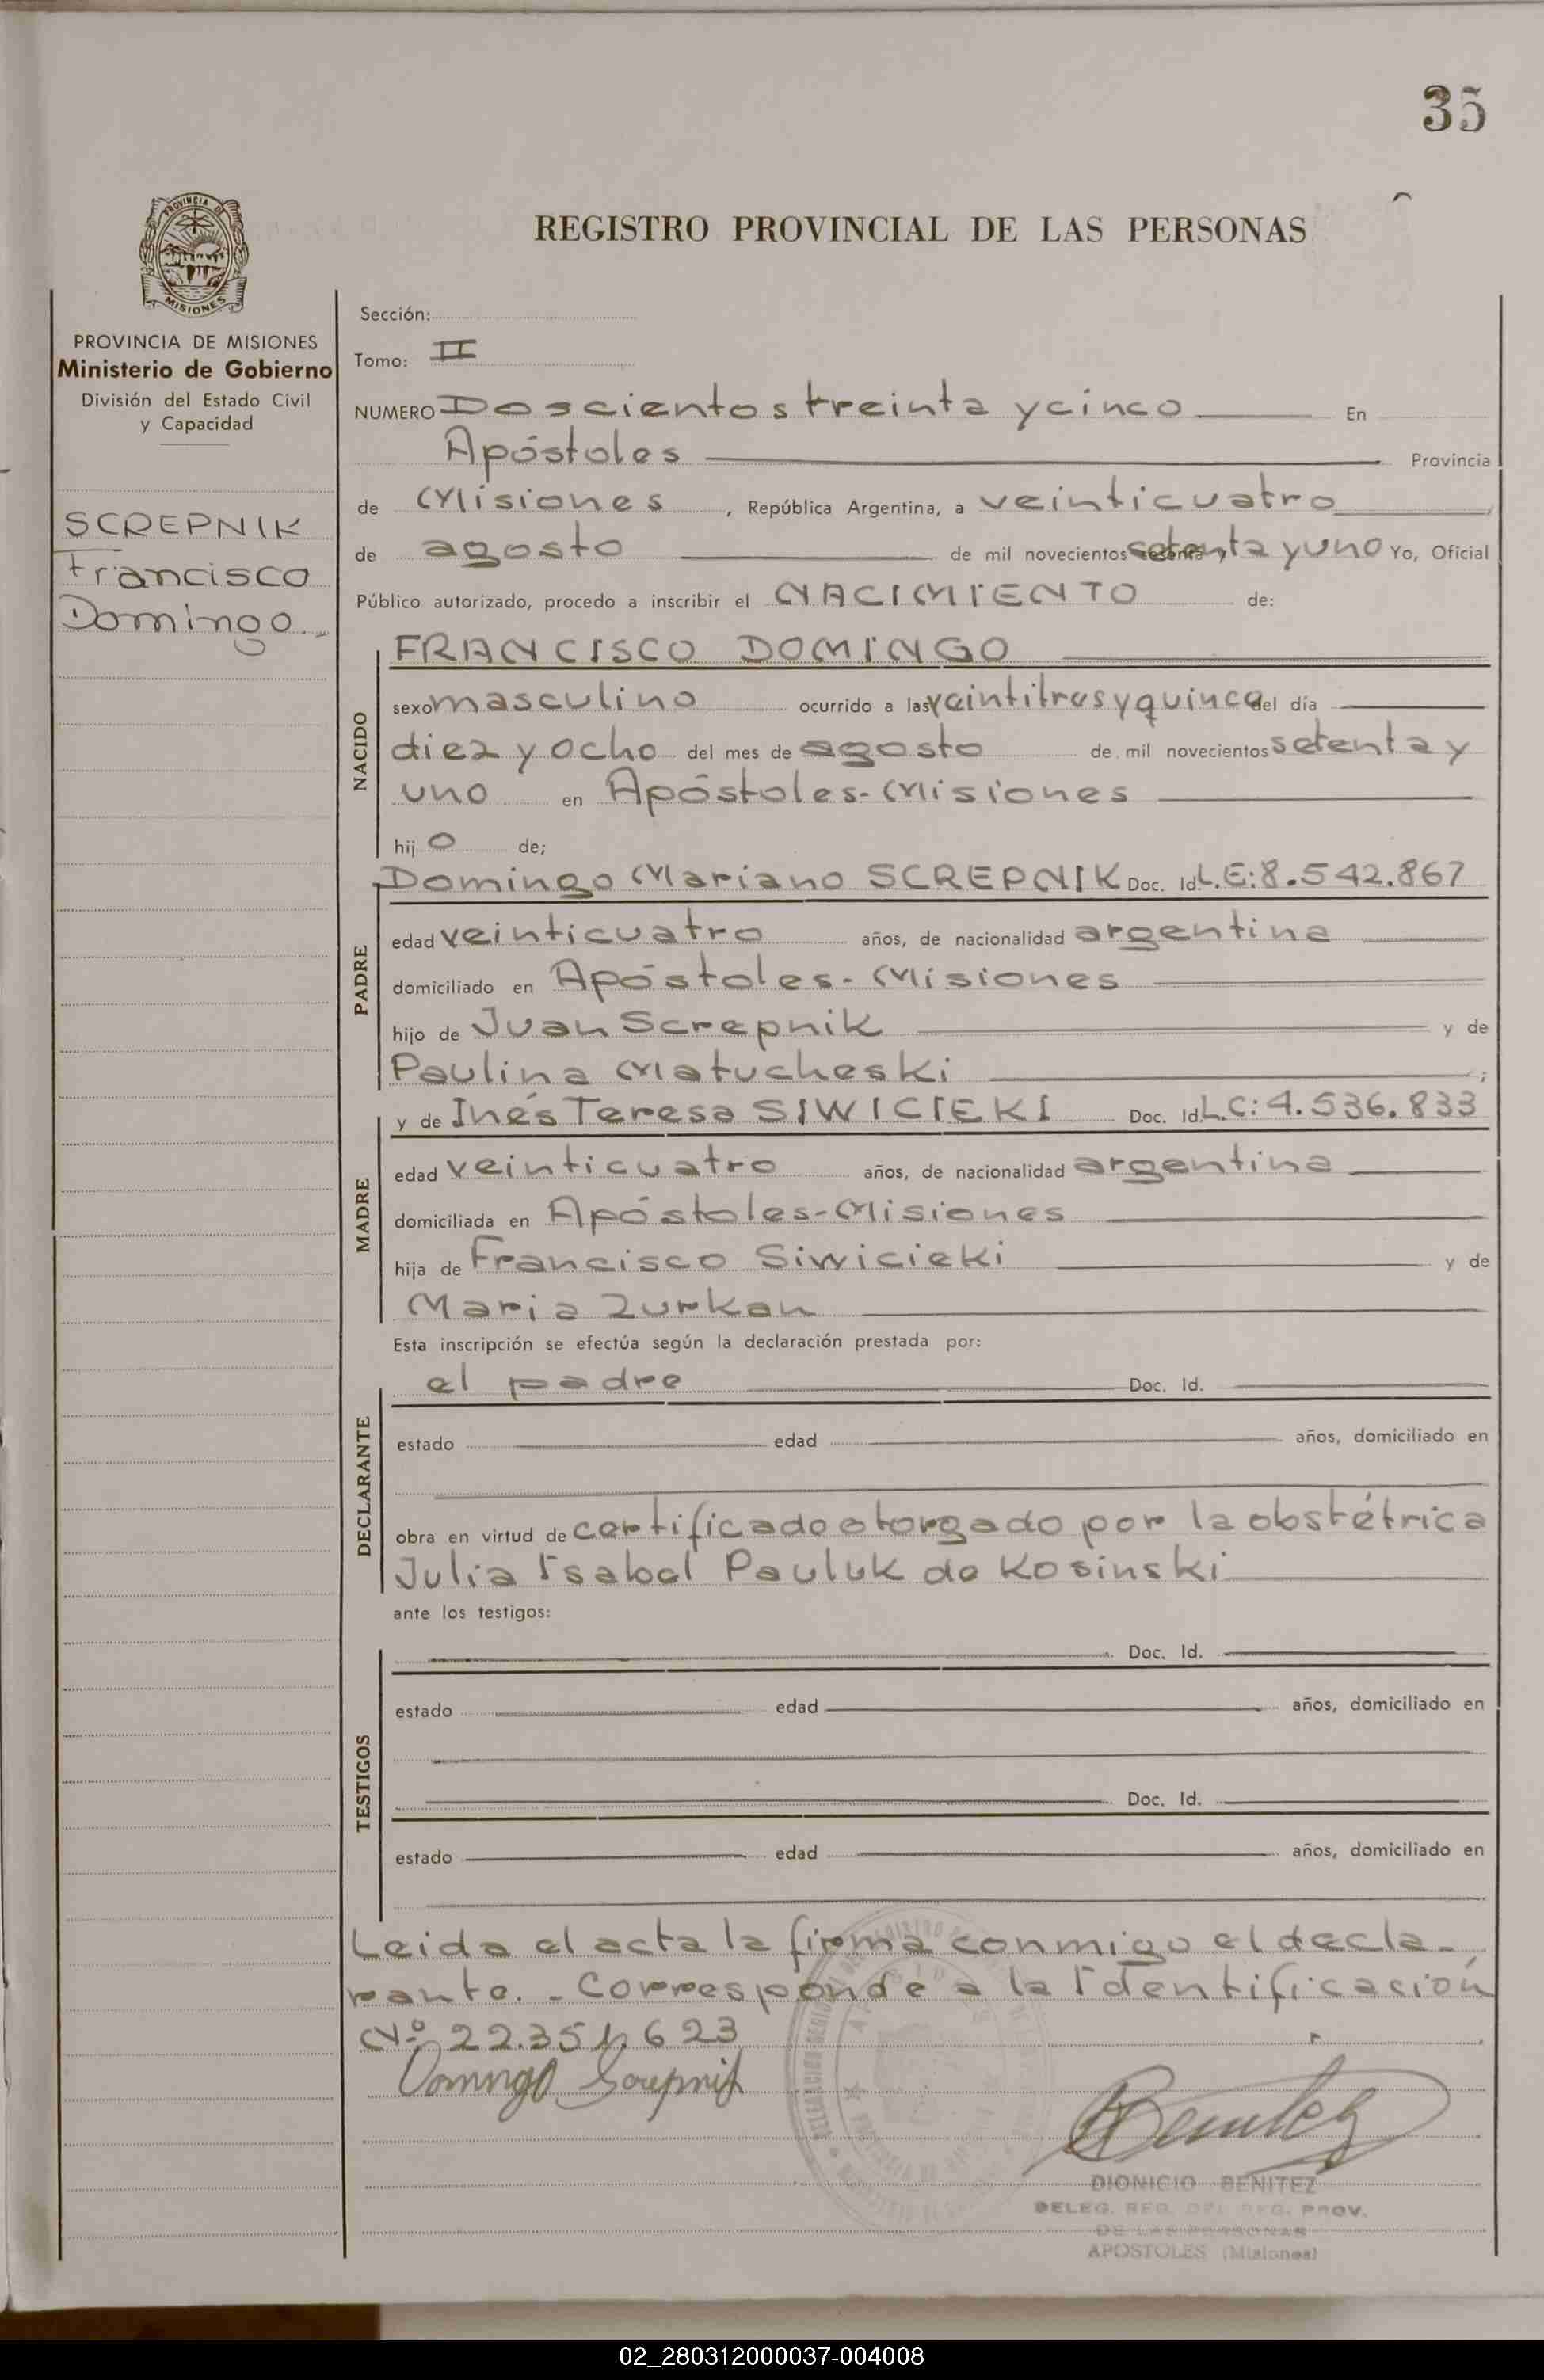 35
PROVINCIA DE
MISIONES
REGISTRO PROVINCIAL DE LAS PERSONAS
PROVINCIA DE MISIONES
Ministerio de Gobierno
División del Estado Civil
y Capacidad
SCREPNIK
Francisco
Domingo.-
Sección:
Tomo: II
NUMERO Doscientos treinta y cinco En
Apóstoles Provincia
de Misiones, República Argentina, a veinticuatro
de agosto de mil novecientos setenta y uno Yo, Oficial
Público autorizado, procedo a inscribir el NACIMIENTO de:
NACIDO
FRANCISCO DOMINGO
sexo masculino ocurrido a las veintitres y quince del día
diez y ocho del mes de agosto de mil novecientos setenta y
uno en Apóstoles-Misiones
hijo de;
PADRE
Domingo Mariano SCREPNIK Doc. Id. L.E:8.542.867
edad veinticuatro años, de nacionalidad argentina
domiciliado en Apóstoles-Misiones
hijo de Juan Screpnik y de
Paulina Matucheski ;
MADRE
y de Inés Teresa SIWICIEKI Doc. Id. L.C:4.536.833
edad veinticuatro años, de nacionalidad argentina
domiciliada en Apóstoles-Misiones
hija de Francisco Siwicieki y de
Maria Zurkan
Esta inscripción se efectúa según la declaración prestada por:
DECLARANTE
el padre Doc. Id.
estado edad años, domiciliado en
obra en virtud de certificado otorgado por la obstétrica
Julia Isabel Pauluk de Kosinski
ante los testigos:
TESTIGOS
Doc. Id.
estado edad años, domiciliado en
Doc. Id.
estado edad años, domiciliado en
Leida el acta la firma conmigo el decla-
rante.-Corresponde a la Identificación
Nº 22.351.623
Domingo Screpnik
Benitez
DIONICIO BENITEZ
DELEG. REG. DEL REG. PROV.
DE LAS PERSONAS
APOSTOLES (Misiones)
02_280312000037-004008